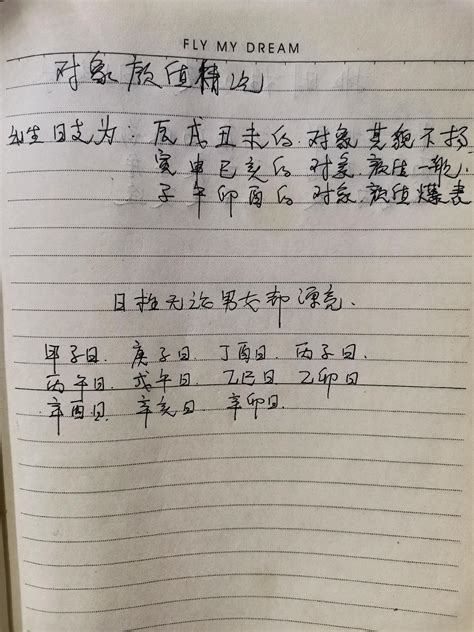 FLY MY DREAM
对象颜值情况
出生日支为：辰戌丑未的对象其貌不扬
寅申巳亥的对象颜值一般.
子午卯酉的对象颜值爆表
日柱无论男女都漂亮.
甲子日. 庚子日. 丁酉日. 丙子日.
丙午日. 戊午日. 乙巳日 乙卯日
辛酉日. 辛亥日. 辛卯日.